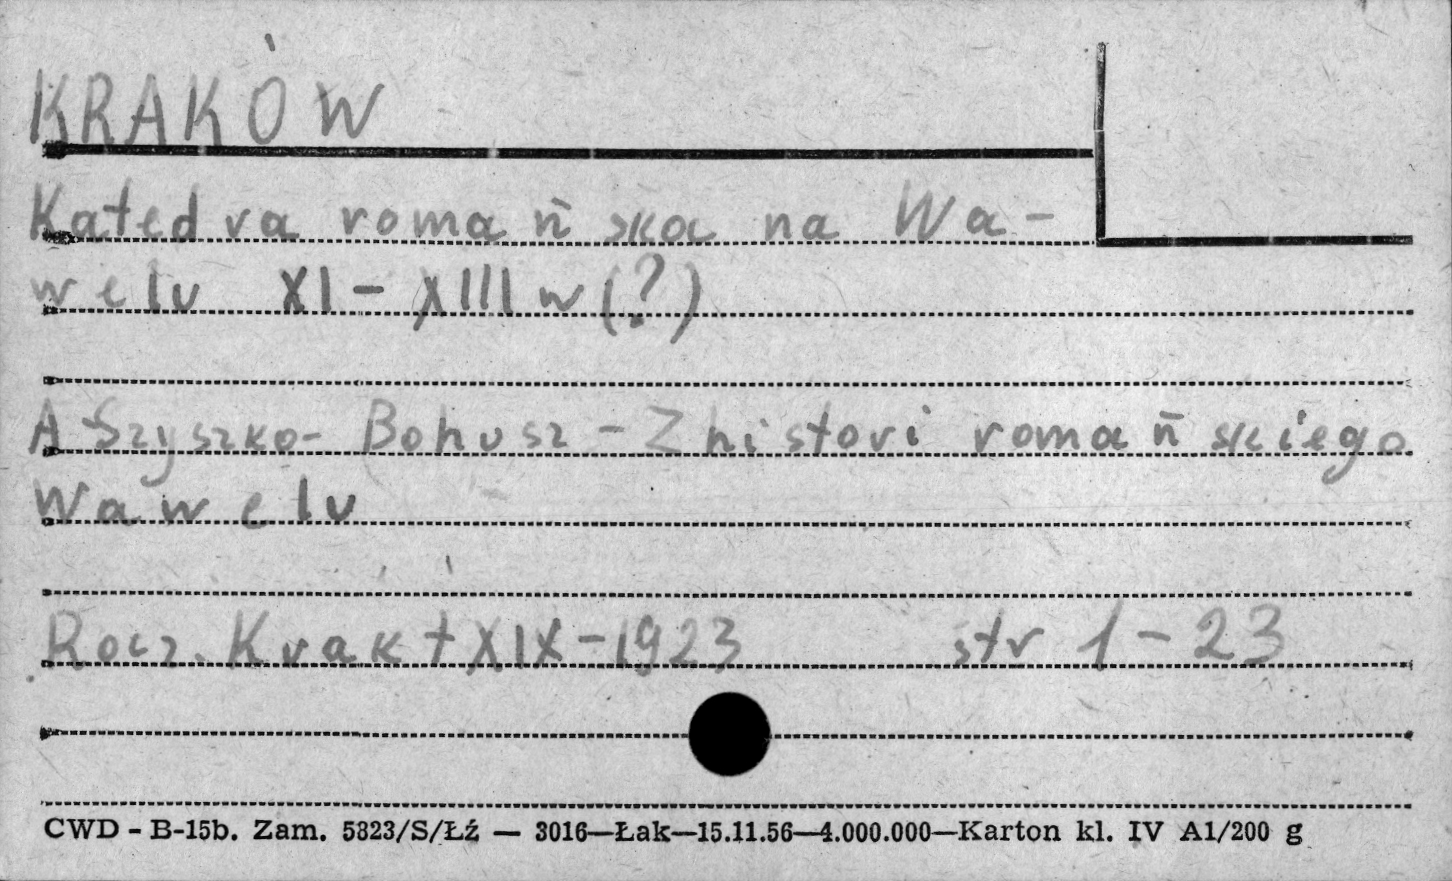 KRAKÓW
Katedra romańska na Wa-
welu XI-XIII w (?)
A Szyszko-Bohusz - Z histori romańskiego
Wawelu
Rocz. Krak t XIX-1923 str 1-23
CWD - B-15b. Zam. 5823/S/Łź — 3016—Łak—15.11.56—4.000.000—Karton kl. IV A1/200 g